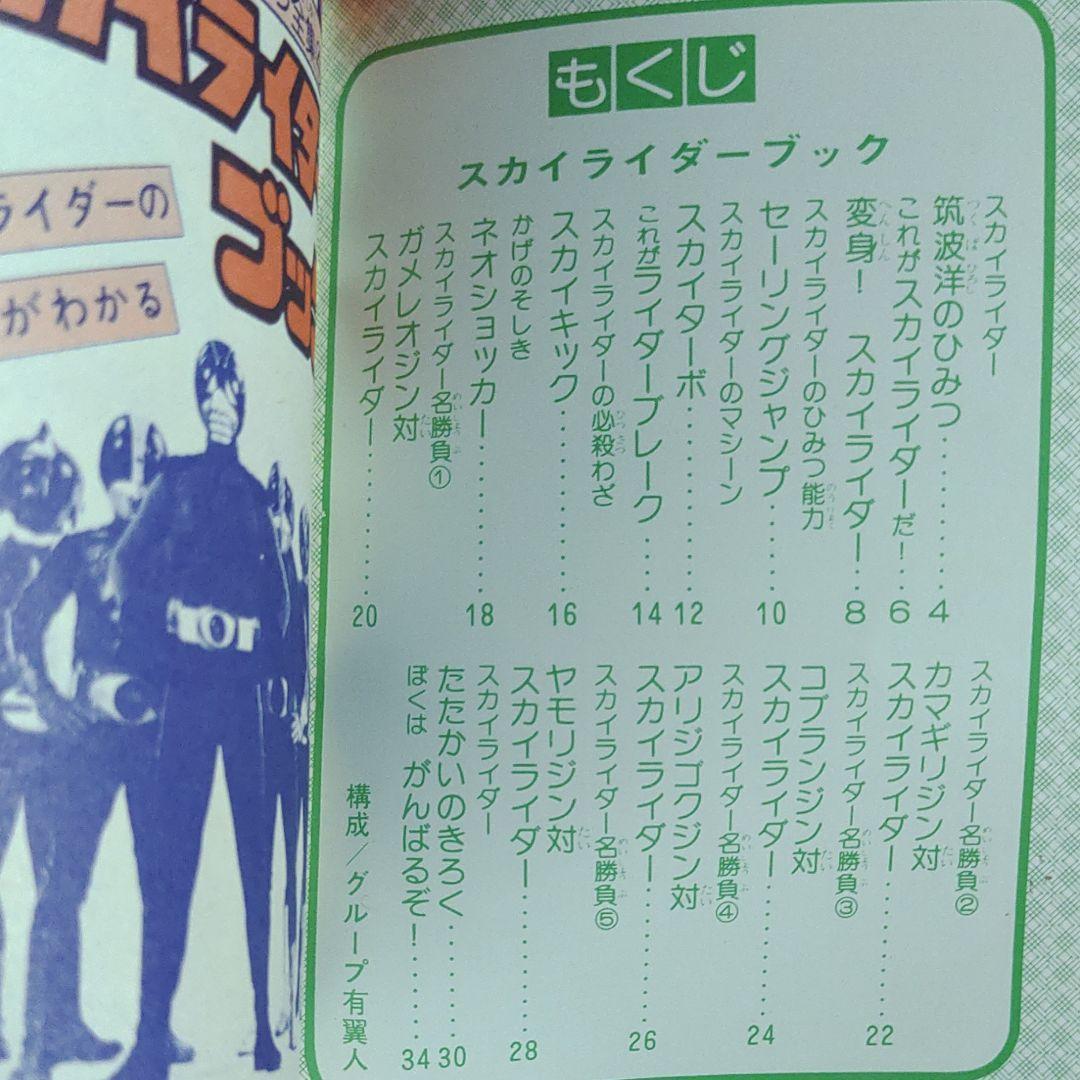 もくじ
スカイライダーブック
スカイライダー
筑波洋のひみつ……… 4
これがスカイライダーだ！… 6
変身！ スカイライダー… 8
スカイライダーのひみつ能力
セーリングジャンプ…… 10
スカイライダーのマシーン
スカイターボ……… 12
これがライダーブレーク…… 14
スカイライダーの必殺わざ
スカイキック……… 16
かげのそしき
ネオショッカー……… 18
スカイライダー名勝負①
ガメレオジン対
スカイライダー……… 20
スカイライダー名勝負②
カマギリジン対
スカイライダー……… 22
スカイライダー名勝負③
コブランジン対
スカイライダー……… 24
スカイライダー名勝負④
アリジゴクジン対
スカイライダー……… 26
スカイライダー名勝負⑤
ヤモリジン対
スカイライダー……… 28
スカイライダー
たたかいのきろく……… 30
ぼくは がんばるぞ！……… 34
構成／グループ有翼人
ライダーの
がわかる